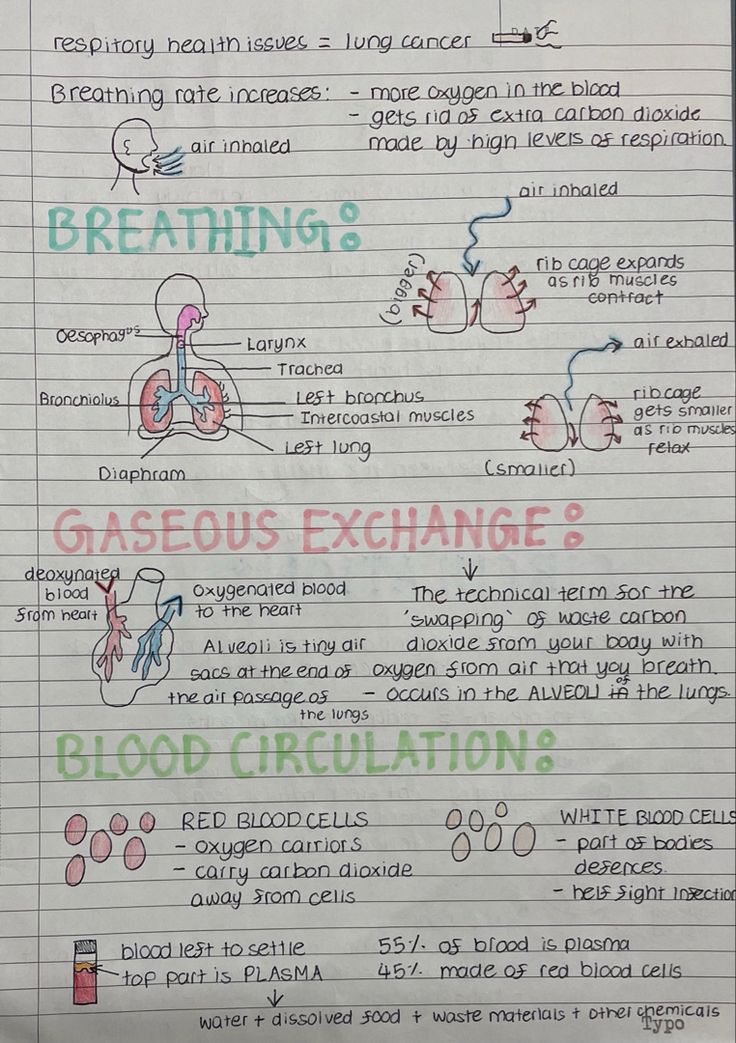 respitory health issues = lung cancer
Breathing rate increases: - more oxygen in the blood
- gets rid of extra carbon dioxide
made by high levels of respiration.
air inhaled
BREATHING:
air inhaled
(bigger)
rib cage expands
as rib muscles
contract
Oesophagus
Larynx
Trachea
Bronchiolus
Left bronchus
Intercoastal muscles
Left lung
Diaphram
air exhaled
rib cage
gets smaller
as rib muscles
relax
(smaller)
GASEOUS EXCHANGE:
deoxynated
blood
from heart
oxygenated blood
to the heart
Alveoli is tiny air
sacs at the end of
the air passage of
the lungs
The technical term for the
'swapping' of waste carbon
dioxide from your body with
oxygen from air that you breath.
- occurs in the ALVEOLI in of the lungs.
BLOOD CIRCULATION:
RED BLOOD CELLS
- oxygen carriors
- carry carbon dioxide
away from cells
WHITE BLOOD CELLS
- part of bodies
defences.
- help fight infection
blood left to settle
top part is PLASMA
55% of blood is plasma
45% made of red blood cells
water + dissolved food + waste materials + other chemicals
Typo